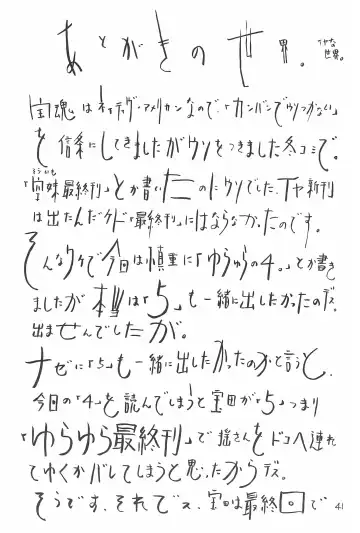 あとがきの世界。イヤな世界。
宝魂はネイティヴ・アメリカンなので、「カンバンでウソつかない」
を信条にしてきましたがウソをつきました冬コミで。
「堂妹最終刊」とか書いたのにウソでした。イヤ新刊
は出たんだケド「最終刊」にはならなかったのです。
そんなワケで今回は慎重に「ゆらゆらの4。」とか書き
ましたが本当は「5」も一緒に出したかったのデス。
出ませんでしたが。
ナゼに「5」も一緒に出したかったのかと言うと、
今回の「4」を読んでしまうと宝田が「5」つまり
「ゆらゆら最終刊」で揺さんをドコへ連れ
てゆくかバレてしまうと思ったからデス。
そうです、それでス、宝田は最終回で
41